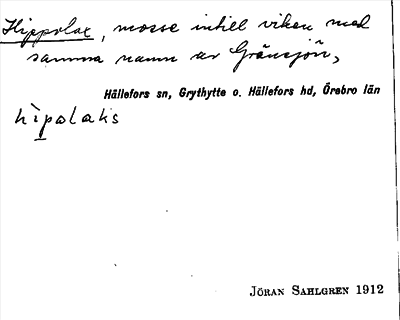 Hippolax, mosse intill viken med
samma namn av Gränsjön,
Hällefors sn, Grythytte o. Hällefors hd, Örebro län
hìpolaks
JÖRAN SAHLGREN 1912